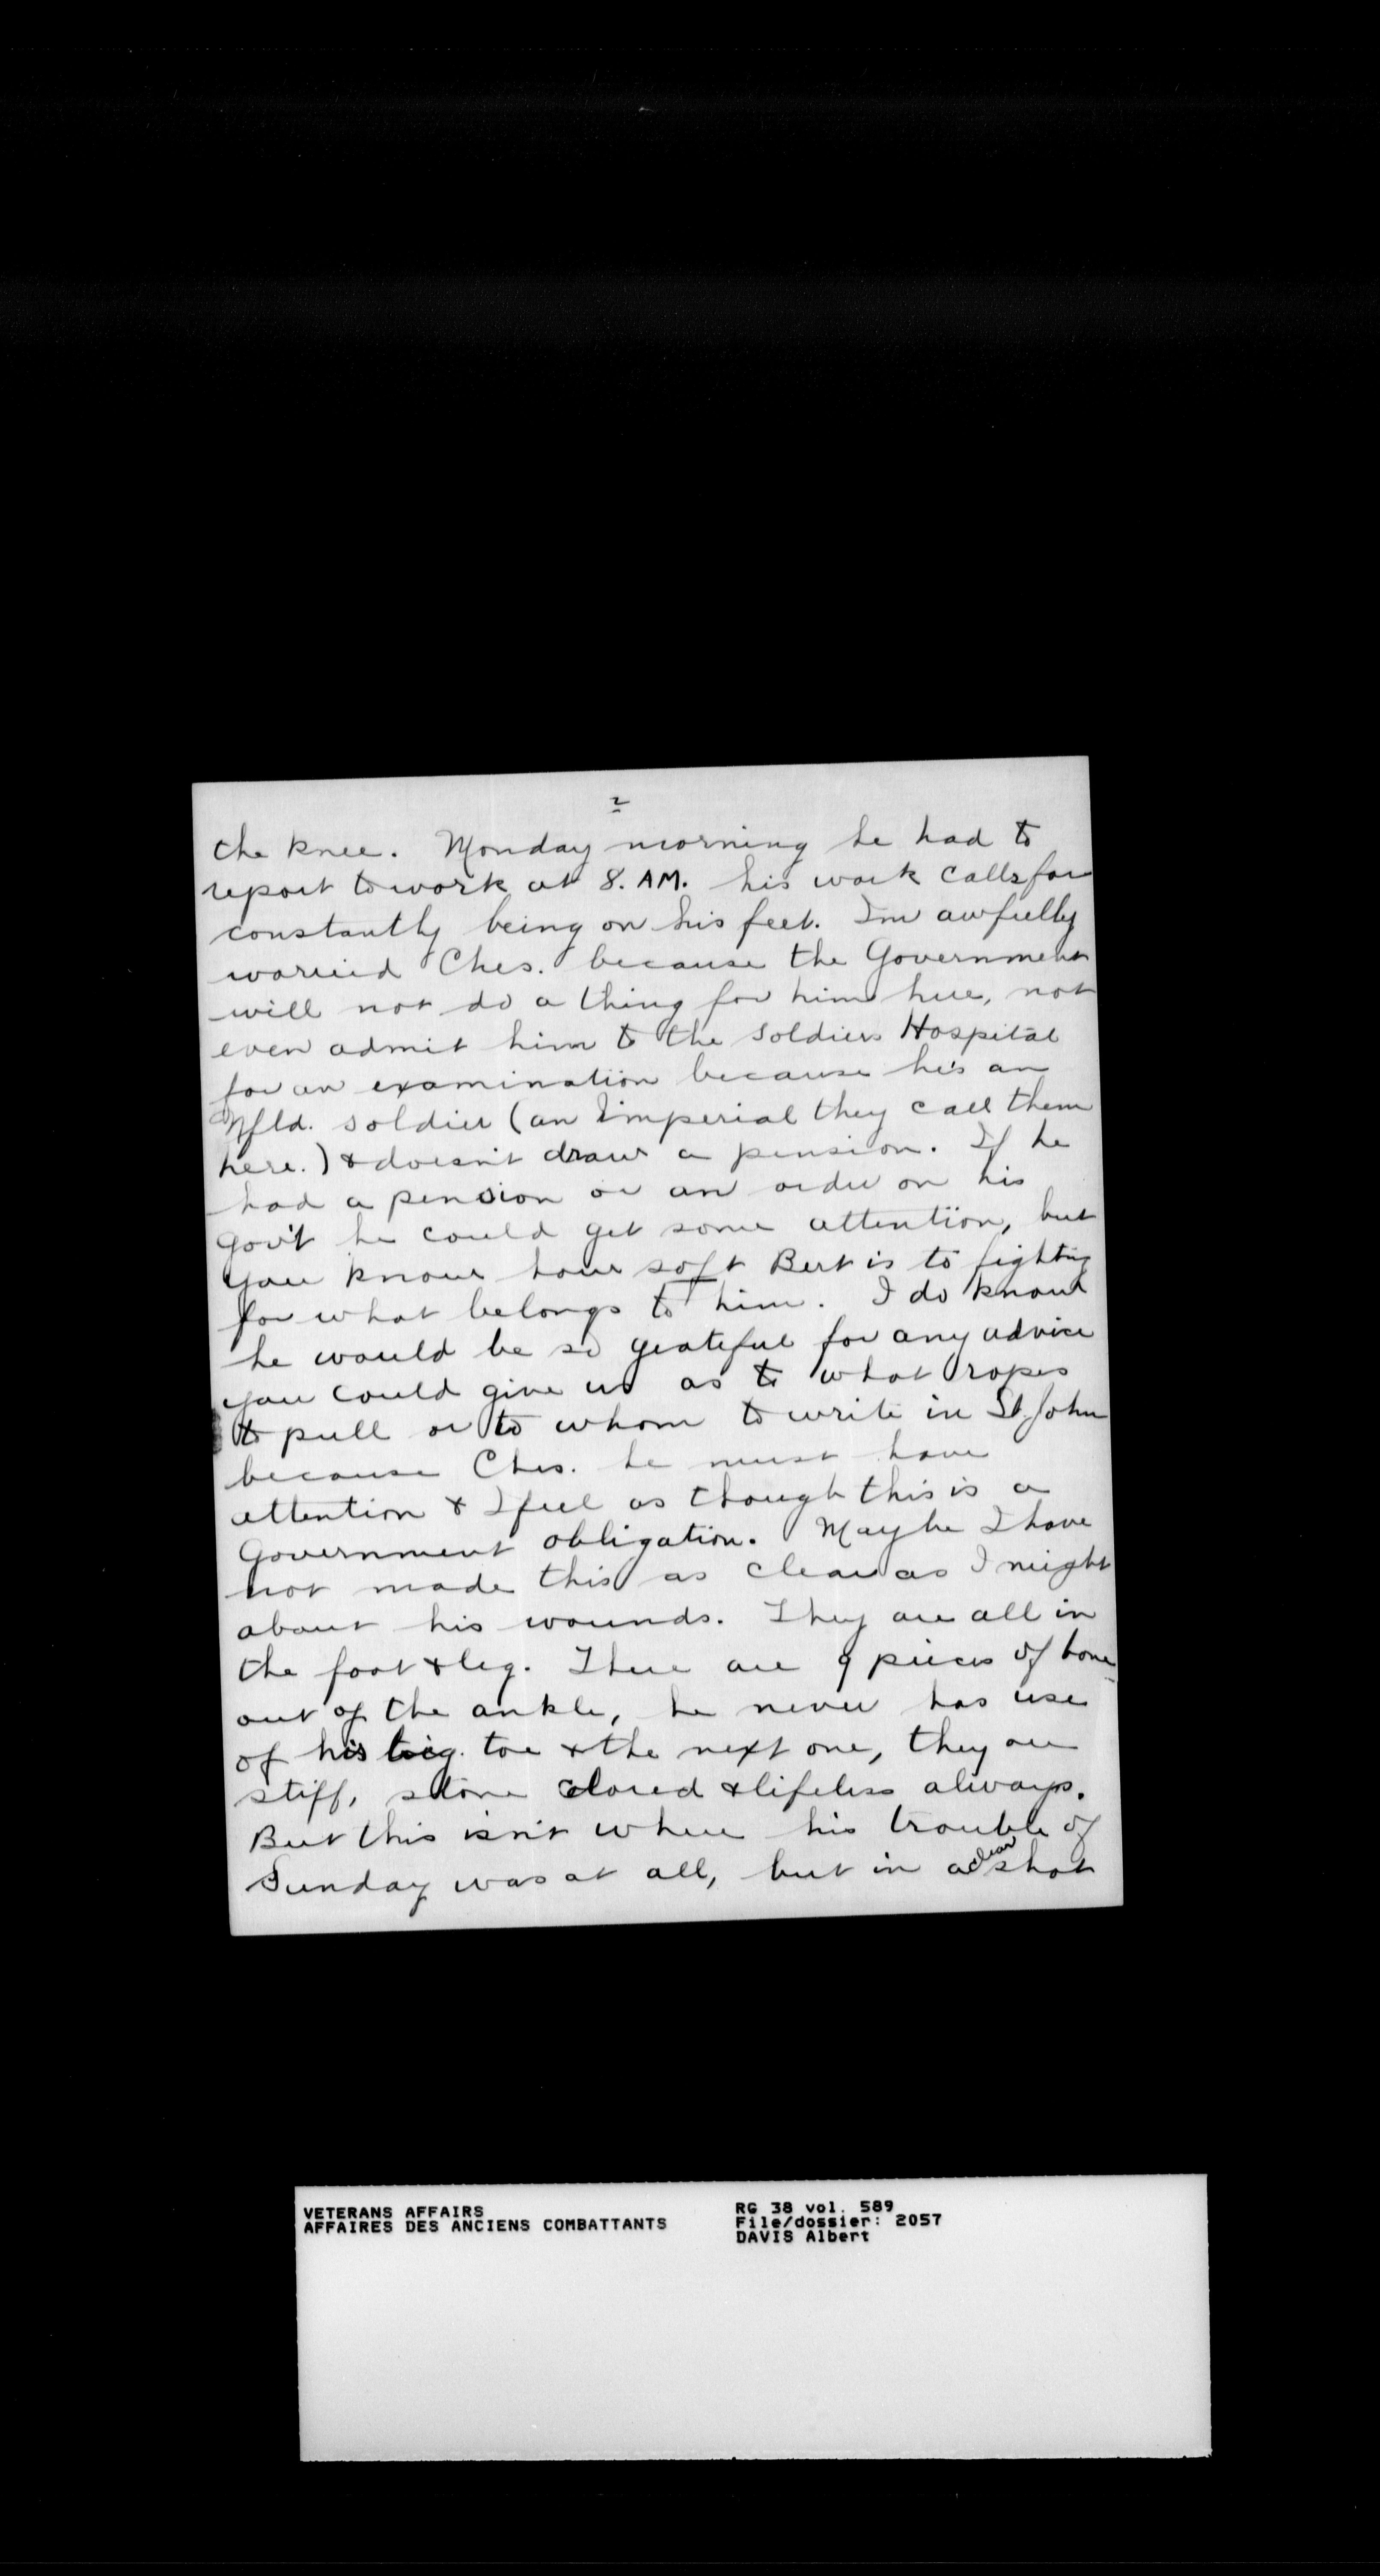 2
the knee. Monday morning he had to
report to work at 8. AM. his work calls for
constantly being on his feet. I'm awfully
worried Ches. because the Government
will not do a thing for him here, not
even admit him to the Soldiers Hospital
for an examination because he's an
Nfld. soldier (an Imperial they call them
here.) & doesn't draw a pension. If he
had a pension or an order on his
Gov't he could get some attention, but
you know how soft Bert is to fighting
for what belongs to him. I do know
he would be so grateful for any advice
you could give us as to what ropes
to pull or to whom to write in St. John
because Ches. he must have
attention & I feel as though this is a
Government obligation. Maybe I have
not made this as clear as I might
about his wounds. They are all in
the foot & leg. There are 9 pieces of bone
out of the ankle, he never has use
of his big toe & the next one, they are
stiff, stone & lifeless always.
But this isn't where his trouble of
Sunday was at all, but in a clean shot
VETERANS AFFAIRS
AFFAIRES DES ANCIENS COMBATTANTS
RG 38 vol. 589
File/dossier: 2057
DAVIS Albert